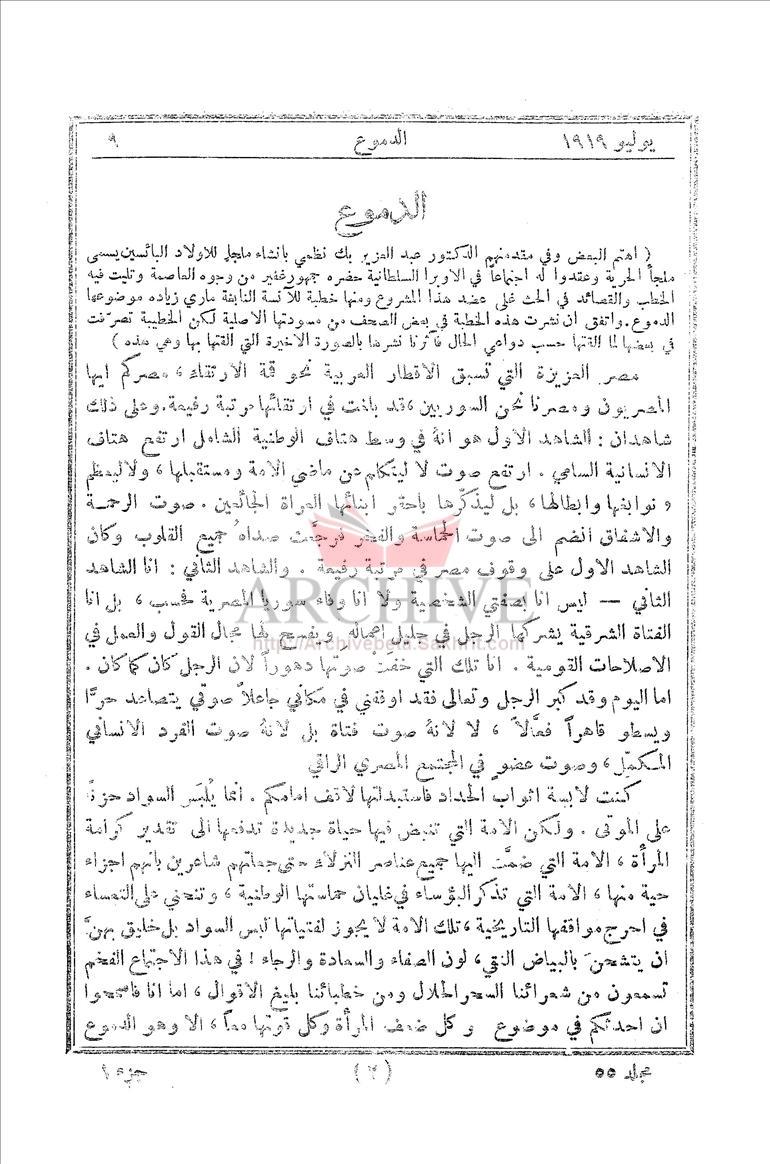 يوليو ١٩١٩ الدموع ٩
الدموع
( اهتم البعض وفي مقدمتهم الدكتور عبد العزيز بك نظمي بانشاء ملجإ للاولاد البائسين يسمى
ملجأ الحرية وعقدوا له اجتماعاً في الاوبرا السلطانية حضره جمهور غفير من وجوه العاصمة وتليت فيه
الخطب والقصائد في الحث على عضد هذا المشروع ومنها خطبة للآنسة النابغة ماري زياده موضوعها
الدموع. واتفق ان نشرت هذه الخطبة في بعض الصحف من مسودتها الاصلية لكن الخطيبة تصرّفت
في بعضها لما القتها حسب دواعي الحال فآثرنا نشرها بالصورة الاخيرة التي القتها بها وهي هذه )
مصر العزيزة التي تسبق الاقطار العربية نحو قمة الارتقاء، مصركم ايها
المصريون ومصرنا نحن السوريين، قد بلغت في ارتقائها مرتبة رفيعة. وعلى ذلك
شاهدان : الشاهد الاول هو انهُ في وسط هتاف الوطنية الشامل ارتفع هتاف
الانسانية السامي . ارتفع صوت لا ليتكلم عن ماضي الامة ومستقبلها، ولا ليعظم
نوابغها وابطالها، بل ليذكّرها باحقر ابنائها العراة الجائعين . صوت الرحمة
والاشفاق انضم الى صوت الحماسة والفخر فرجَّعت صداهُ جميع القلوب وكان
الشاهد الاول على وقوف مصر في مرتبة رفيعة . والشاهد الثاني : انا الشاهد
الثاني — ليس انا بصفتي الشخصية ولا انا وفاء سوريا المصرية فحسب، بل انا
الفتاة الشرقية يشركها الرجل في جليل اعماله ويفسح لها مجال القول والعمل في
الاصلاحات القومية . انا تلك التي خفت صوتها دهوراً لان الرجل كان كما كان .
اما اليوم وقد كبر الرجل وتعالى فقد اوقفني في مكاني جاعلاً صوتي يتصاعد حرًّا
ويسطو قاهراً فعَّالاً، لا لانهُ صوت فتاة بل لانهُ صوت الفرد الانساني
المكمّل، وصوت عضوٍ في المجتمع المصري الراقي
كنت لابسة اثواب الحداد فاستبدلتها لاقف امامكم . انما يُلبَس السواد حزناً
على الموتى . ولكن الامة التي تنبض فيها حياة جديدة تدفعها الى تقدير كرامة
المرأة، الامة التي ضمَّت اليها جميع عناصر النزلاء حتى جعلتهم شاعرين بانهم اجزاء
حية منها، الامة التي تذكر البؤساء في غليان حماستها الوطنية، وتنحني على التعساء
في احرج مواقفها التاريخية، تلك الامة لا يجوز لفتياتها لبس السواد بل خليق بهنَّ
ان يتشحنَ بالبياض النقي، لون الصفاء والسعادة والرجاء ! في هذا الاجتماع الفخم
تسمعون من شعرائنا السحر الحلال ومن خطبائنا بليغ الاقوال، اما انا فاسمحوا
ان احدثكم في موضوع وكل ضعف المرأة وكل قوتها معاً، الا وهو الدموع
مجلد ٥٥ (٢) جزء ١
ARCHIVE
http://Archivebeta.Sakhrit.com